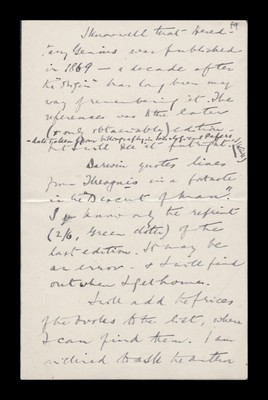 I know well that Hered-
"ary Genius was published
in 1869 — a decade after
the "Origin" has long been my
way of remembering it. The
reference was to the later
(& only obtainable) edition
— date taken from bibliography in
but I will see it put right —
Darwin quotes lines
from Theognis in a footnote
in the "Descent of Man".
I know only the reprint
(2/6, Green cloth) of the
last edition. It may be
an error — & I will find
out when I get home.
I will add the prices
of the books to the list, where
I can find them. I am
inclined to ask the author